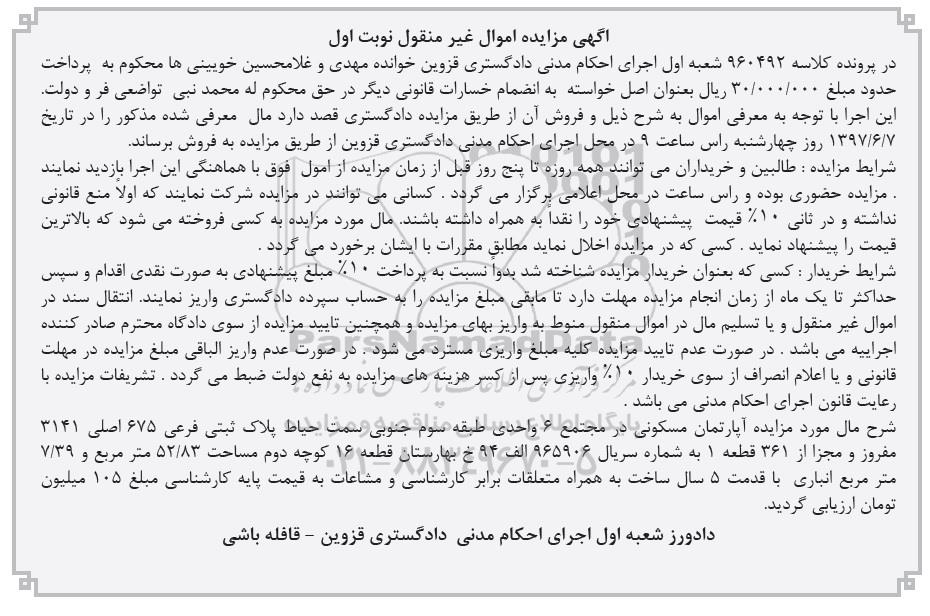 اگهی مزایده اموال غیر منقول نوبت اول
در پرونده کلاسه ۹۶۰۴۹۲ شعبه اول اجرای احکام مدنی دادگستری قزوین خوانده مهدی و غلامحسین خویینی ها محکوم به پرداخت
حدود مبلغ ۳۰/۰۰۰/۰۰۰ ریال بعنوان اصل خواسته به انضمام خسارات قانونی دیگر در حق محکوم له محمد نبی تواضعی فر و دولت.
این اجرا با توجه به معرفی اموال به شرح ذیل و فروش آن از طریق مزایده دادگستری قصد دارد مال معرفی شده مذکور را در تاریخ
۱۳۹۷/۶/۷ روز چهارشنبه راس ساعت ۹ در محل اجرای احکام مدنی دادگستری قزوین از طریق مزایده به فروش برساند.
شرایط مزایده : طالبین و خریداران می توانند همه روزه تا پنج روز قبل از زمان مزایده از امول فوق با هماهنگی این اجرا بازدید نمایند
. مزایده حضوری بوده و راس ساعت در محل اعلامی برگزار می گردد . کسانی می توانند در مزایده شرکت نمایند که اولاً منع قانونی
نداشته و در ثانی ۱۰٪ قیمت پیشنهادی خود را نقداً به همراه داشته باشند. مال مورد مزایده به کسی فروخته می شود که بالاترین
قیمت را پیشنهاد نماید . کسی که در مزایده اخلال نماید مطابق مقررات با ایشان برخورد می گردد .
شرایط خریدار : کسی که بعنوان خریدار مزایده شناخته شد بدواً نسبت به پرداخت ۱۰٪ مبلغ پیشنهادی به صورت نقدی اقدام و سپس
حداکثر تا یک ماه از زمان انجام مزایده مهلت دارد تا مابقی مبلغ مزایده را به حساب سپرده دادگستری واریز نمایند. انتقال سند در
اموال غیر منقول و یا تسلیم مال در اموال منقول منوط به واریز بهای مزایده و همچنین تایید مزایده از سوی دادگاه محترم صادر کننده
اجراییه می باشد . در صورت عدم تایید مزایده کلیه مبلغ واریزی مسترد می شود . در صورت عدم واریز الباقی مبلغ مزایده در مهلت
قانونی و یا اعلام انصراف از سوی خریدار ۱۰٪ واریزی پس از کسر هزینه های مزایده به نفع دولت ضبط می گردد . تشریفات مزایده با
رعایت قانون اجرای احکام مدنی می باشد .
شرح مال مورد مزایده آپارتمان مسکونی در مجتمع ۶ واحدی طبقه سوم جنوبی سمت حیاط پلاک ثبتی فرعی ۶۷۵ اصلی ۳۱۴۱
مفروز و مجزا از ۳۶۱ قطعه ۱ به شماره سریال ۹۶۵۹۰۶ الف ۹۴ خ بهارستان قطعه ۱۶ کوچه دوم مساحت ۵۲/۸۳ متر مربع و ۷/۳۹
متر مربع انباری با قدمت ۵ سال ساخت به همراه متعلقات برابر کارشناسی و مشاعات به قیمت پایه کارشناسی مبلغ ۱۰۵ میلیون
تومان ارزیابی گردید.
دادورز شعبه اول اجرای احکام مدنی دادگستری قزوین - قافله باشی
ParsNamadData
پایگاه اطلاع رسانی مناقصه و مزایده
۰۲۱-۸۸۳۴۹۶۷۰-۵